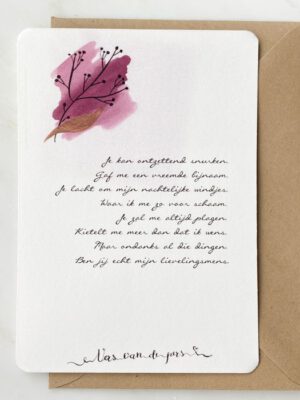 Je kan ontzettend snurken.
Gaf me een vreemde bijnaam.
Je lacht om mijn nachtelijke windjes.
Waar ik me zo voor schaam.
Je zal me altijd plagen.
Kietelt me meer dan dat ik wens.
Maar ondanks al die dingen.
Ben jij echt mijn lievelingsmens.
Vers van de pers